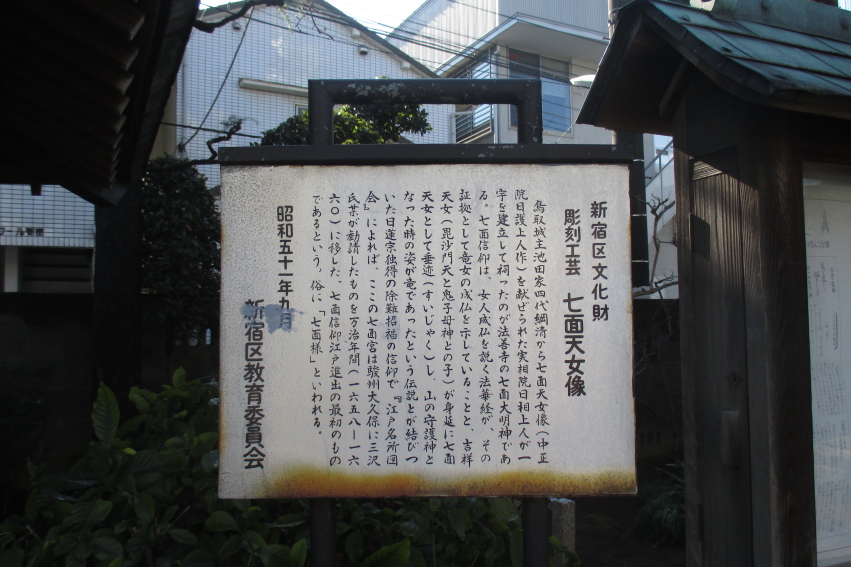 新宿区文化財
彫刻工芸 七面天女像
鳥取城主池田家四代綱清から七面天女像(中正
院日護上人作)を献ぜられた実相院日相上人が一
宇を建立して祠ったのが法善寺の七面大明神であ
る。七面信仰は、女人成仏を説く法華経が、その
証拠として竜女の成仏を示していることと、吉祥
天女(毘沙門天と鬼子母神との子)が身延に七面
天女として垂迹(すいじゃく)し、山の守護神と
なった時の姿が竜であったという伝説とが結びつ
いた日蓮宗独得の除難招福の信仰で『江戸名所図
会』によれば、ここの七面宮は駿州大久保に三沢
氏某が勧請したものを万治年間(一六五八ー一六
六〇)に移した、七面信仰江戸進出の最初のもの
であるという。俗に「七面様」といわれる。
昭和五十一年九月
新宿区教育委員会